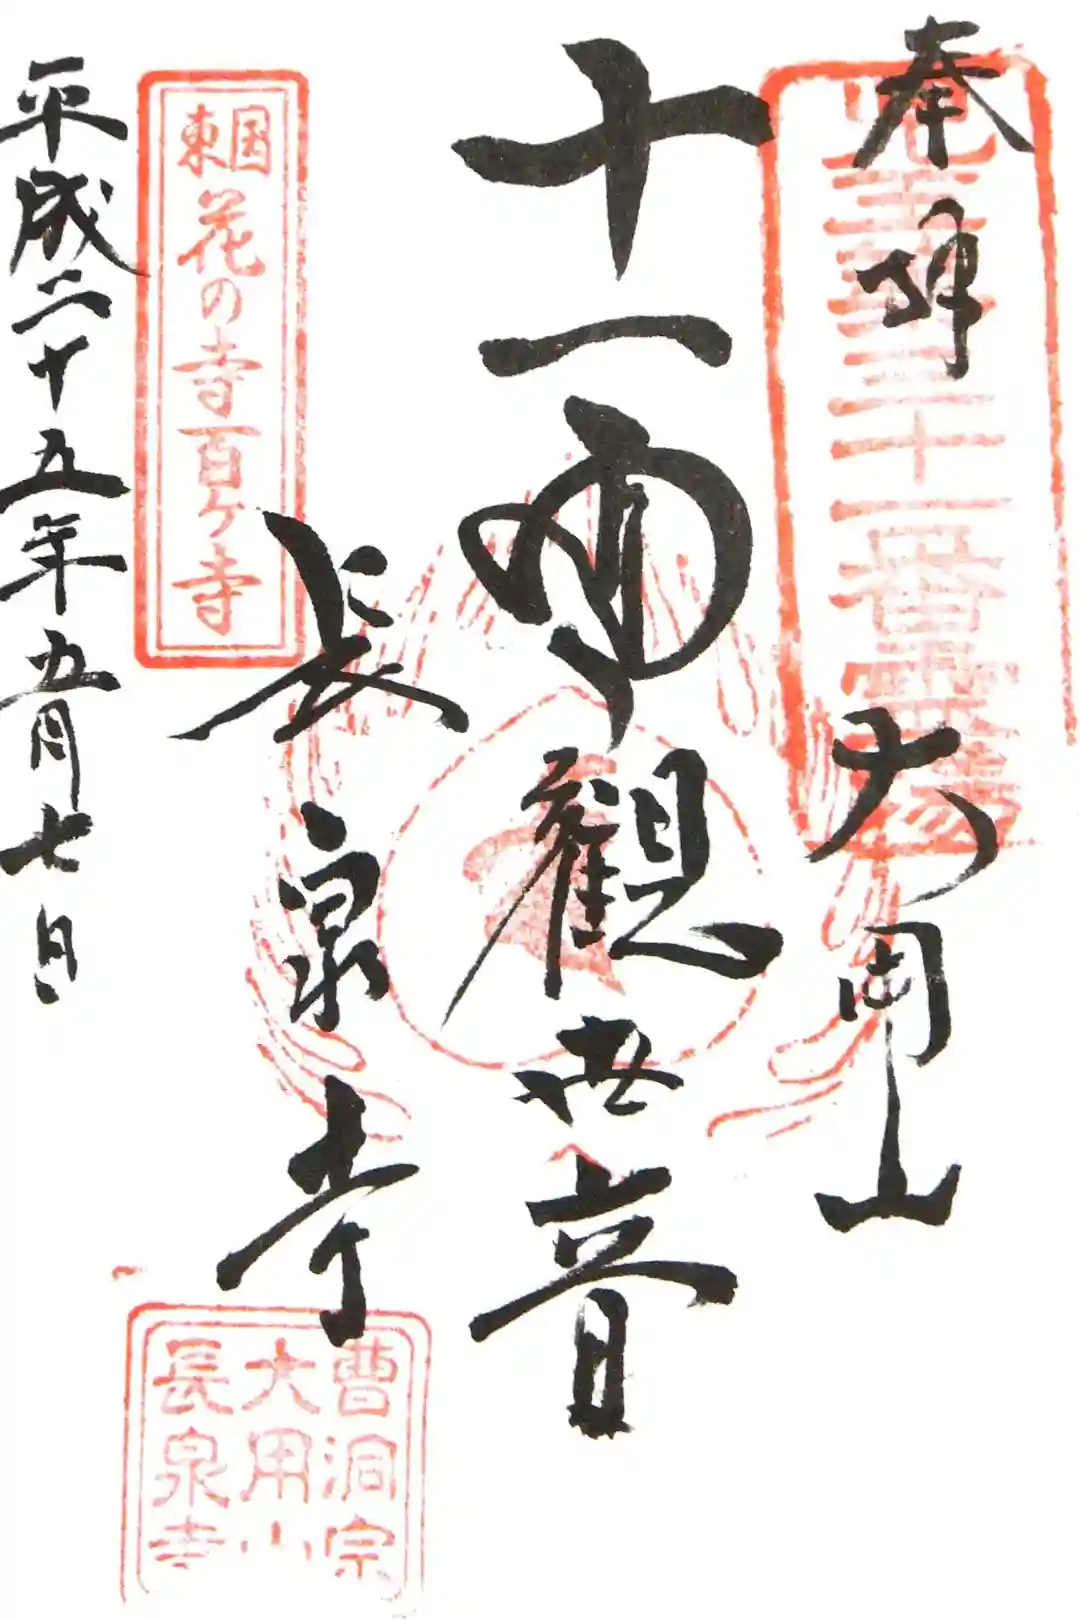 奉拝
大用山
児玉第三十一番霊場
十一面観世音
長泉寺
東国
花の寺百ヶ寺
平成二十五年五月七日
曹洞宗
大用山
長泉寺